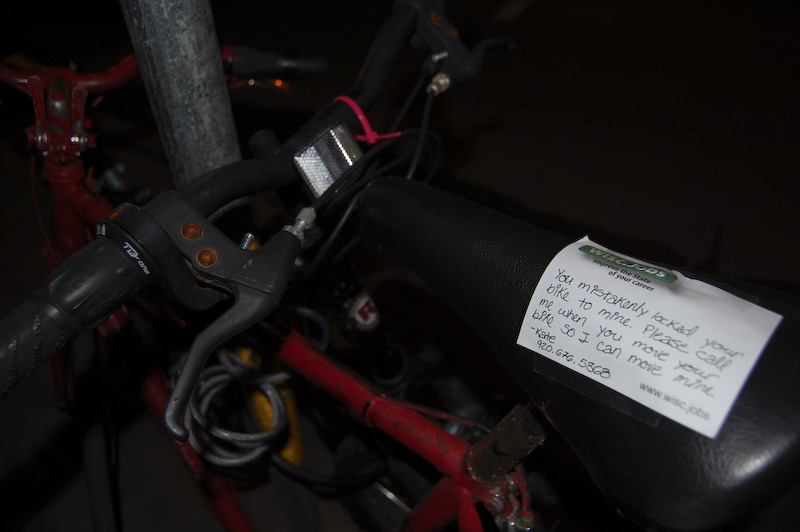 TD-one
R
Wisc.Jobs
Improve the State
of your career
You mistakenly locked your
bike to mine. Please call
me when you move your
bike so I can move mine
-Kate
920.676.5368
www.wisc.jobs